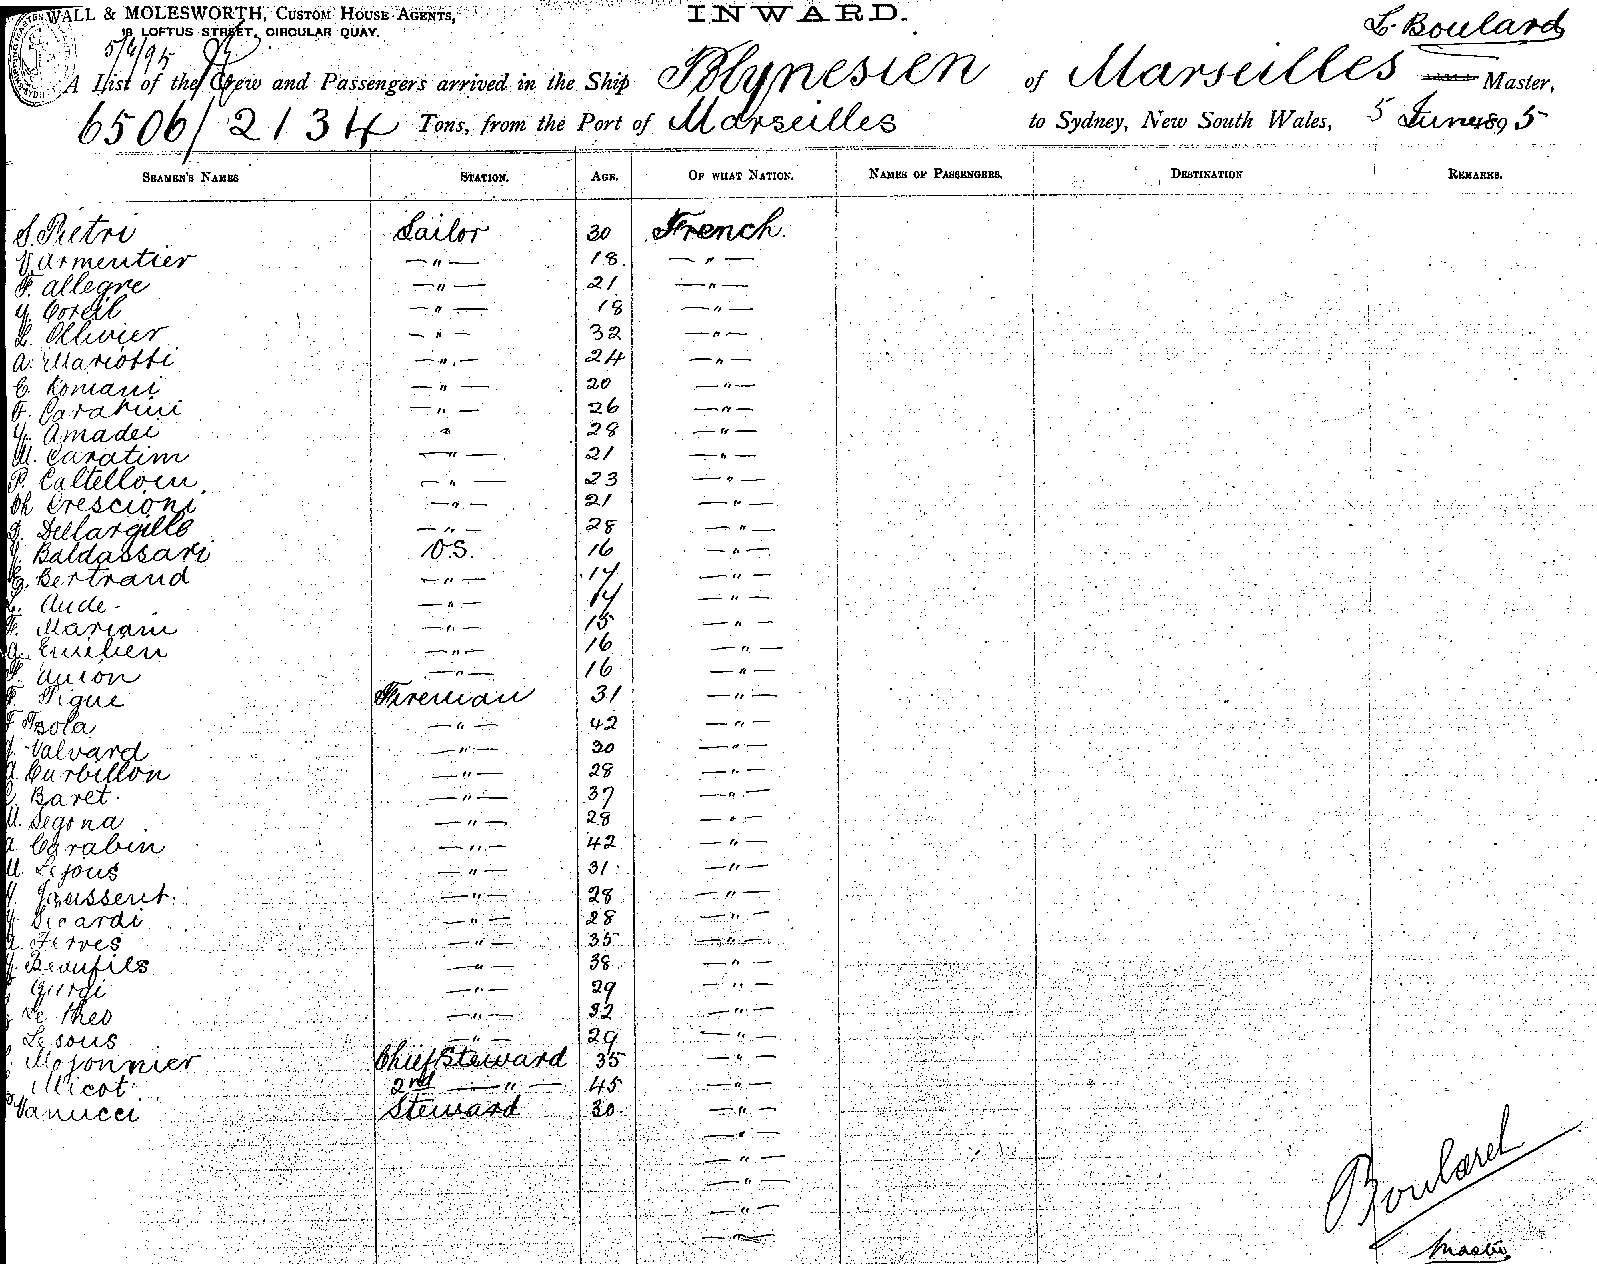 WALL & MOLESWORTH, CUSTOM HOUSE AGENTS,
8 LOFTUS STREET, CIRCULAR QUAY.
INWARD.
L. Boulard
5/6/95
A List of the Crew and Passengers arrived in the Ship Polynesien of Marseilles Master,
6506/2134 Tons, from the Port of Marseilles to Sydney, New South Wales, 5 June 1895
SEAMEN'S NAMES STATION. AGE. OF WHAT NATION. NAMES OF PASSENGERS. DESTINATION REMARKS.
S. Pietri Sailor 30 French.
V. Armentier —"— 18 —"—
F. Allegre —"— 21 —"—
Y. Coreil —"— 18 —"—
L. Ollivier —"— 32 —"—
A. Mariotti —"— 24 —"—
C. Romani —"— 20 —"—
F. Carabini —"— 26 —"—
Y. Amadei " 28 —"—
M. Caratini —"— 21 —"—
P. Caltelloin —"— 23 —"—
Ph Crescioni —"— 21 —"—
Dellargille —"— 28 —"—
Baldassari O.S. 16 —"—
Bertrand —"— 17 —"—
Aude —"— 14 —"—
F. Mariani —"— 15 —"—
A. Emilien —"— 16 —"—
Aucon —"— 16 —"—
F. Pigue Fireman 31 —"—
Isola —"— 42 —"—
Valvard —"— 30 —"—
Curbillon —"— 28 —"—
Baret —"— 37 —"—
M. Segona —"— 28 —"—
Carabin —"— 42 —"—
M. Lejous —"— 31 —"—
Joussent —"— 28 —"—
Sicardi —"— 28 —"—
Ferves —"— 35 —"—
Beaufils —"— 38 —"—
Gurdi —"— 29 —"—
Le Theo —"— 32 —"—
Lesous —"— 29 —"—
Mojonnier Chief Steward 35 —"—
Micot 2nd —"— 45 —"—
Vanucci Steward 30 —"—
—"—
—"—
—"—
—"—
—"—
Boulard
Master